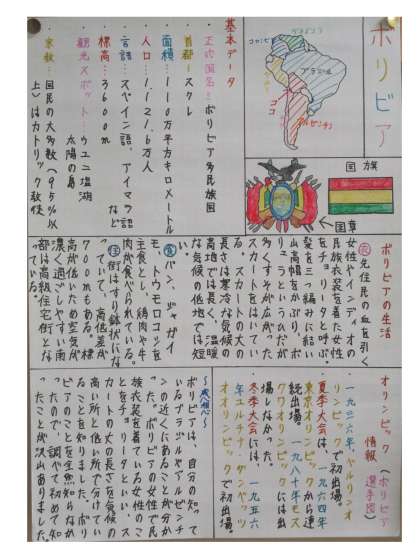 ボリビア
コロンビア
ブラジル
ココ
アルゼンチン
国旗
国章
基本データ
正式国名…ボリビア多民族国
首都…スクレ
面積…110万平方キロメートル
人口…1,121.6万人
言語…スペイン語、アイマラ語
など
標高…3600m
観光スポット…ウユニ塩湖
太陽の島
宗教…国民の大多数(95%以
上)はカトリック教徒
ボリビアの生活
衣 先住民の血を引く
女性やインディオの
民族衣装を着た女性
をチョリータと呼ぶ。
髪を三つ編みに結い、
山高帽をかぶり、ボ
リュームのあるひだが
多くすそが広がった
スカートをはいてい
る。スカートの丈の
長さは寒冷な気候の
高地では長く、温暖
な気候の低地では短
食 パン、ジャガイ
モ、トウモロコシを
主食とし、鶏肉や牛
肉が食べられている。
住 街はすり鉢状にな
っていて、高低差が
700mもある。標
高が低いため空気が
濃く過ごしやすい南
部は高級住宅街とな
っている。
オリンピック(ボリビア
情報 選手団)
一九三六年、ベルリンオ
リンピックで初出場。
夏季大会は、一九六四年
東京オリンピックから連
続出場。一九八〇年モス
クワオリンピックには出
場しなかった。
冬季大会には、一九五六
年コルチナ・ダンペッツ
オオリンピックで初出場。
〜感想〜
ボリビアは、自分の知って
いるブラジルやアルゼンチ
ンの近くにあることが分か
った。ボリビアの女性で民
族衣装を着ている女性のこ
とをチョリータといい、ス
カートの丈の長さを気候の
高い所と低い所で分けてい
ることを知りました。ボリ
ビアのことを全然知らなか
ったので、調べて初めて知
ったことが沢山ありました。